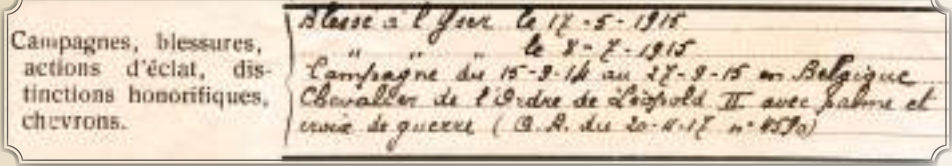 Campagnes, blessures,
actions d'éclat, dis-
tinctions honorifiques,
chevrons.
Blessé à l'Yser le 17-5-1915
" " " le 8-7-1915
Campagne du 15-9-14 au 27-9-15 en Belgique
Chevalier de l'Ordre de Léopold II avec palme et
croix de guerre (A.R. du 20-11-17 n° 4590)